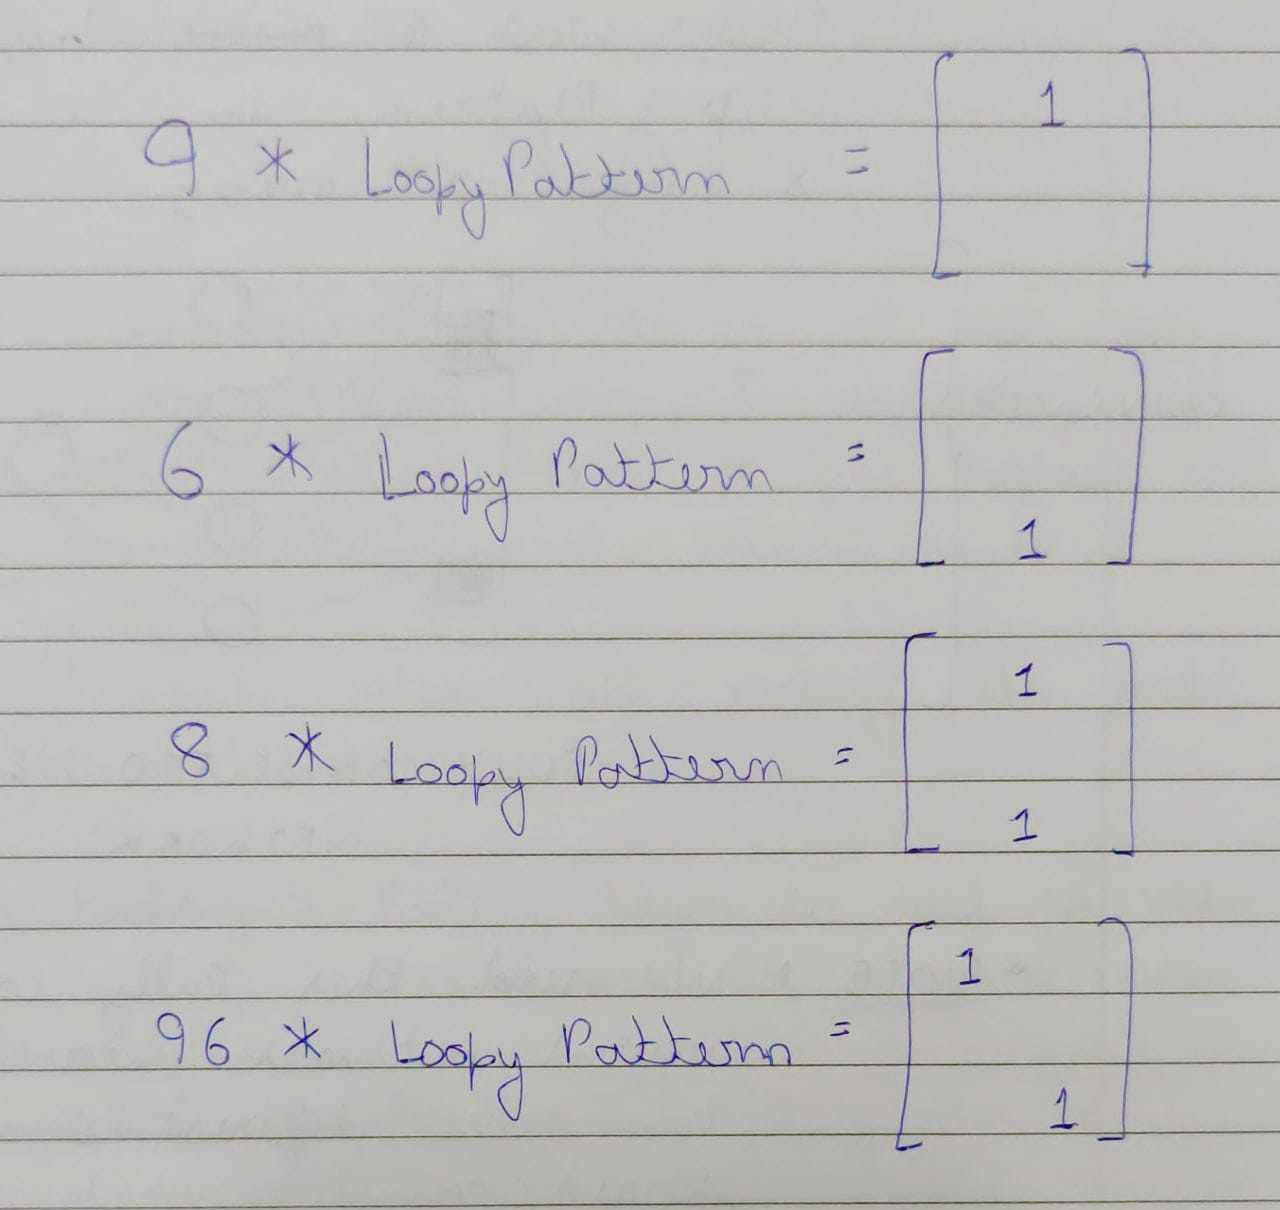 1
9 * Loopy Pattern =
6 * Loopy Pattern =
1
1
8 * Loopy Pattern =
1
1
96 * Loopy Pattern =
1